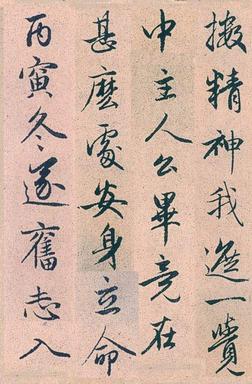 擻精神我遮一覺
中主人公畢竟在
甚麼處安身立命
丙寅冬遂奮志入